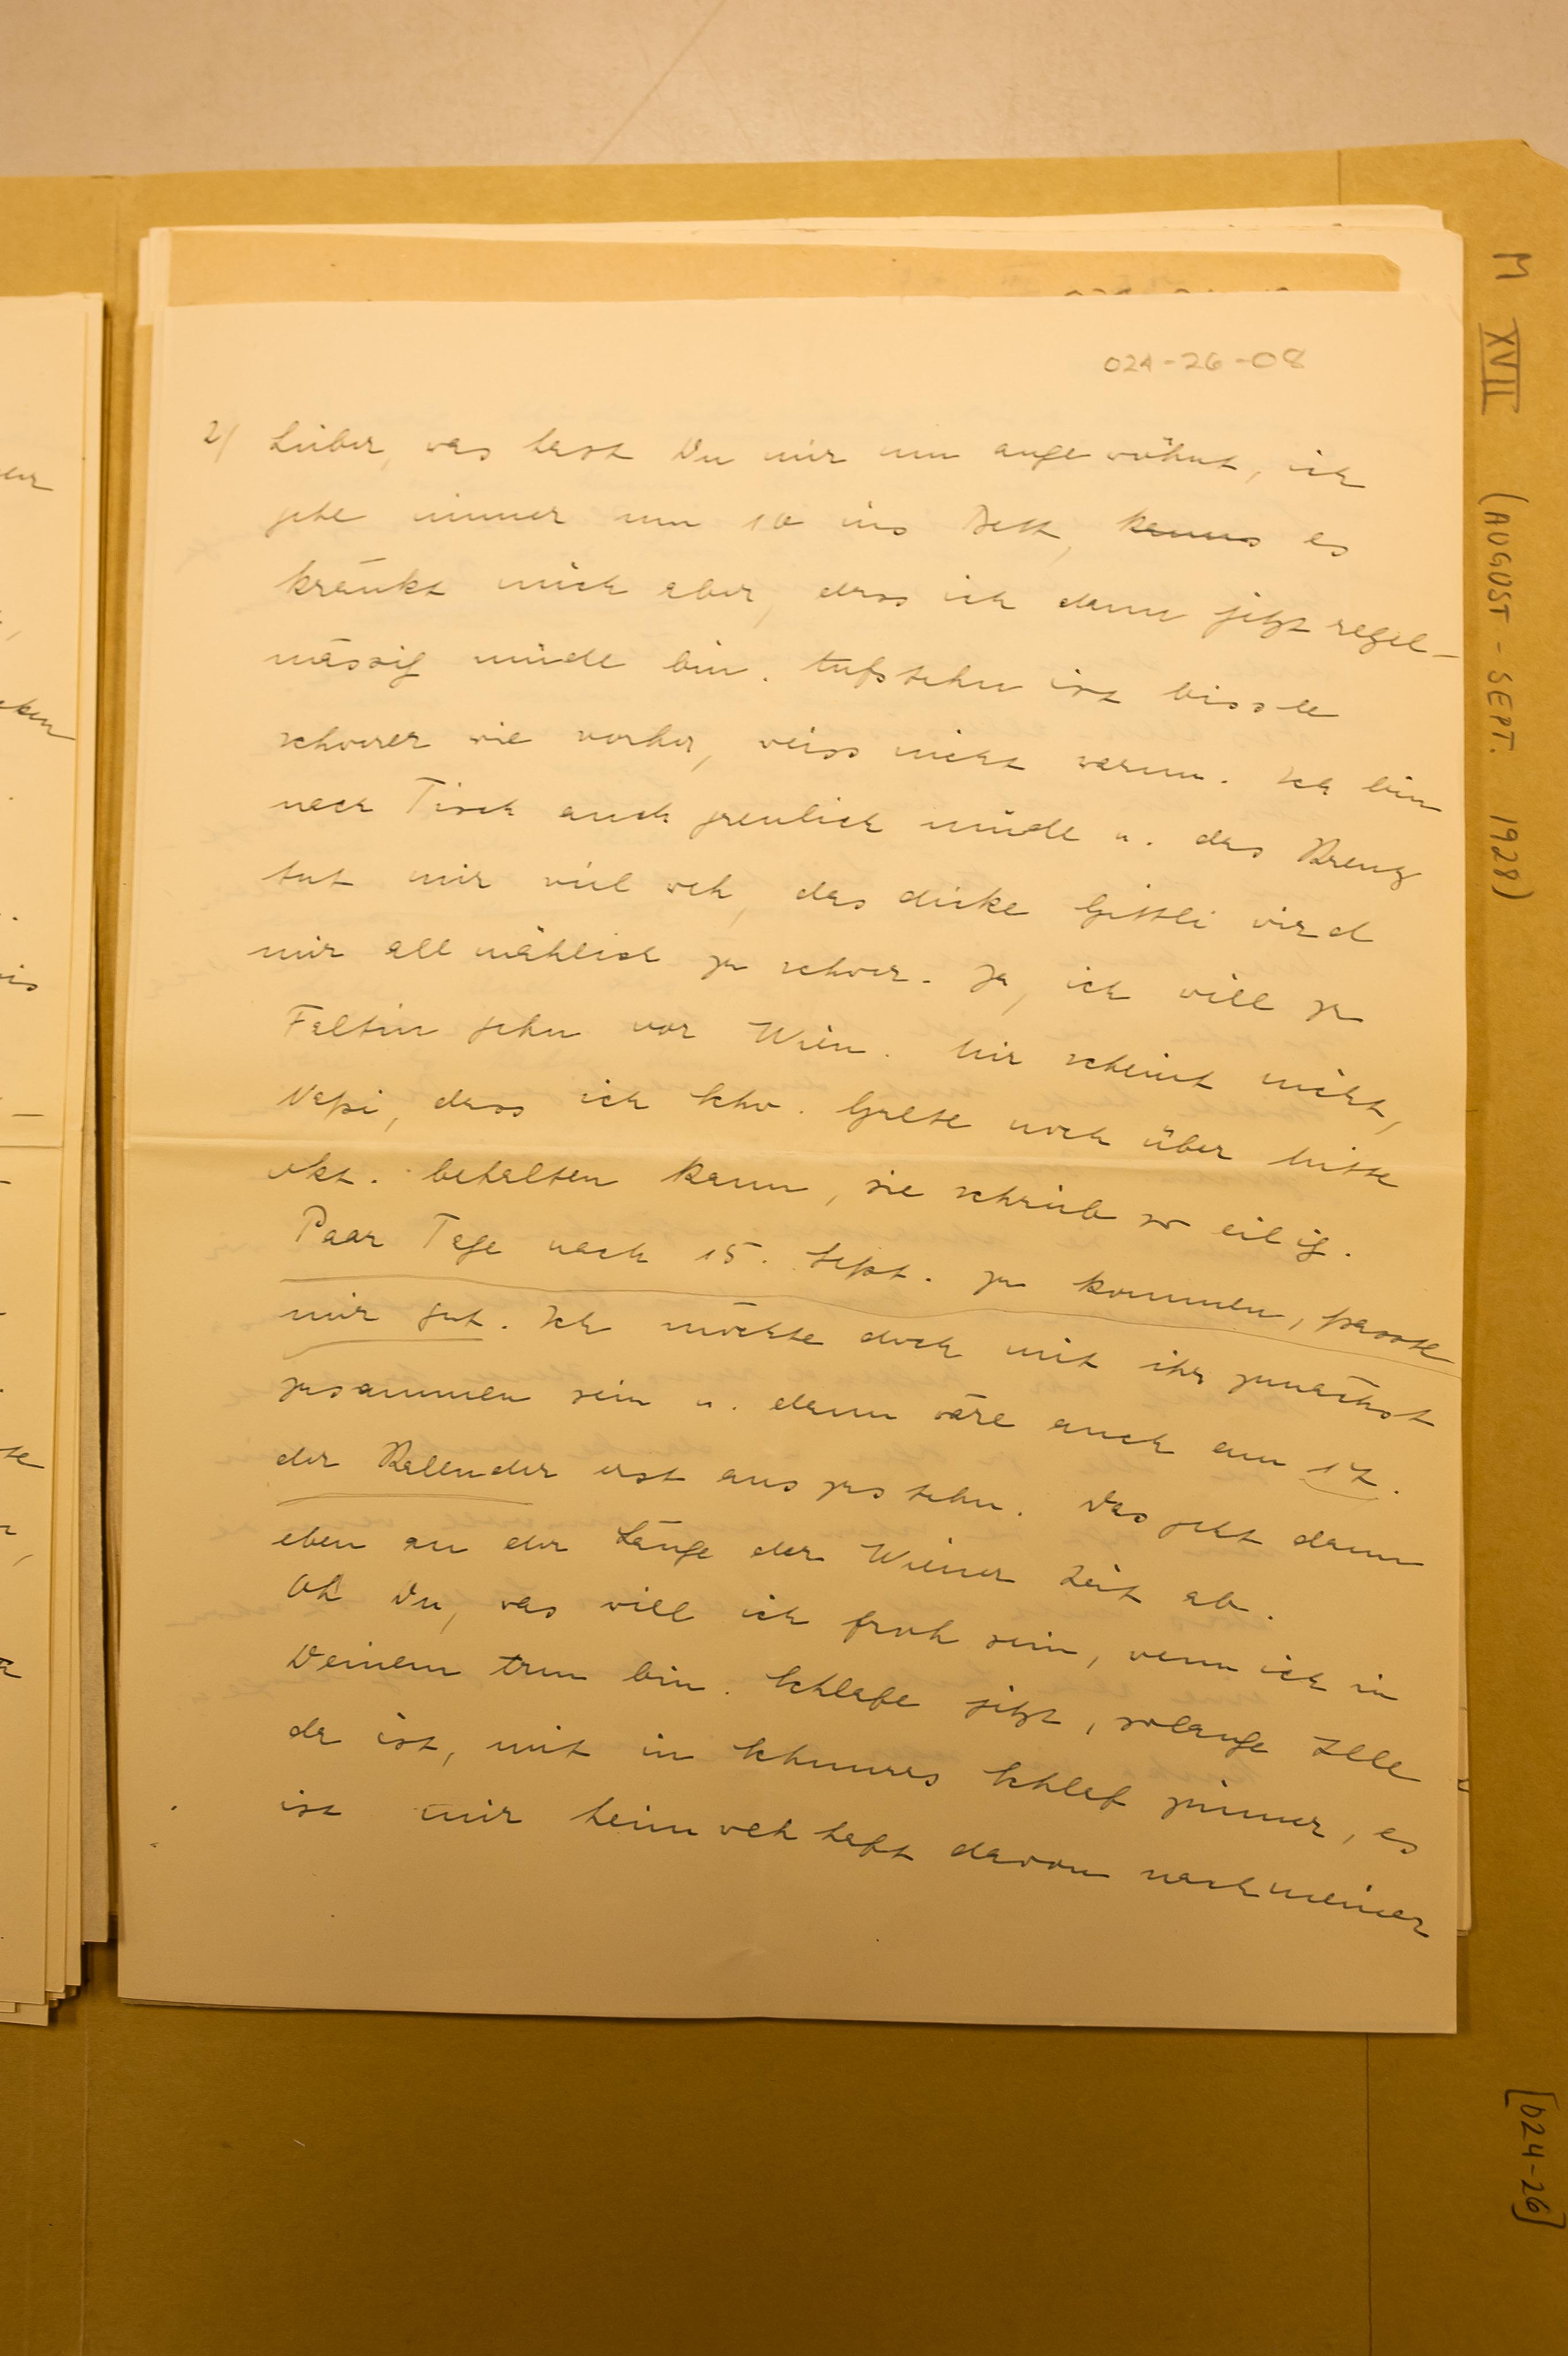 024-26-08
2/ Lieber, was hast Du mir nun angewöhnt, ich
gehe immer um 10 ins Bett, es
kränkt mich aber, dass ich dann jetzt regel-
mässig müde bin. Aufstehn ist bissle
schwerer wie vorher, weiss nicht warum. Ich bin
nach Tisch auch greulich müde u. das Kreuz
tut mir viel weh, das dicke Gittli wird
mir allmählich zu schwer. Ja, ich will zu
Faltin gehn vor Wien. Mir scheint nicht,
dass ich Schw. Grete noch über Mitte
Okt. behalten kann, sie schrieb so eilig.
Paar Tage nach 15. Sept. zu kommen, passte
mir gut. Ich möchte doch mit ihr zunächst
zusammen sein u. dann wäre auch am 17.
der Kalender erst auszustehn. Das geht dann
eben an der Länge der Wiener Zeit ab.
Oh Du, was will ich froh sein, wenn ich in
Deinem Arm bin. Schlafe jetzt, solange
da ist, mit in Schnures Schlafzimmer, es
ist mir heimwehhaft davon nach meiner
M XVII (AUGUST - SEPT. 1928)
[024-26]